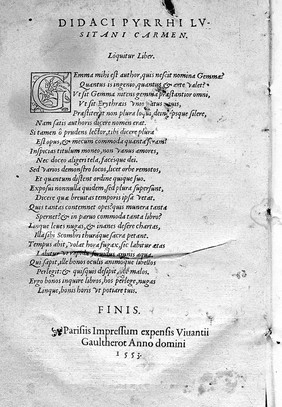 DIDACI PYRRHI LV-
SITANI CARMEN.
Loquitur Liber.
GEmma mihi est author, quis nescit nomina Gemmæ?
Quantus is ingenio, quantus & arte valet?
Vt sit Gemma intens gemma præstantior omni,
Vt sit Erythræis vnio vnicus,
Præsiterit non plura loqui, deinceps silere,
Nam satis authoris dicere nomen erat.
Si tamen ô prudens lector, tibi dicere plura
Est opus, & mecum commoda quanta feram?
Inspectas titulum moneo, non vanus amores,
Nec doceo aligeri tela, faciesque dei.
Sed varios demonstro locos, licet orbe remotos,
Et quantum distent ordine quoque suo,
Exposui nonnulla quidem, sed plura supersunt,
Dicere quæ breuitas temporis ipsa vetat.
Quis tantas contemnet opes? quis munera tanta
Spernet? & in paruo commoda tanta libro?
Linque leues nugas, & inanes desere chartas,
Illæsos Scombris thuraque sacra petant.
Tempus abit, volat hora fugax, sic labitur ætas
Labitur vt amnis aqua.
Qui sapit, ille bonos oculis animoque libellos
Perlegit: & quisquis desipit, ille malos.
Ergo bonos inquire libros, hos perlege, nugas
Linque, bonis horis vt potiare tuis.
FINIS.
Parisiis Impressum expensis Viuantii
Gaultherot Anno domini
1553